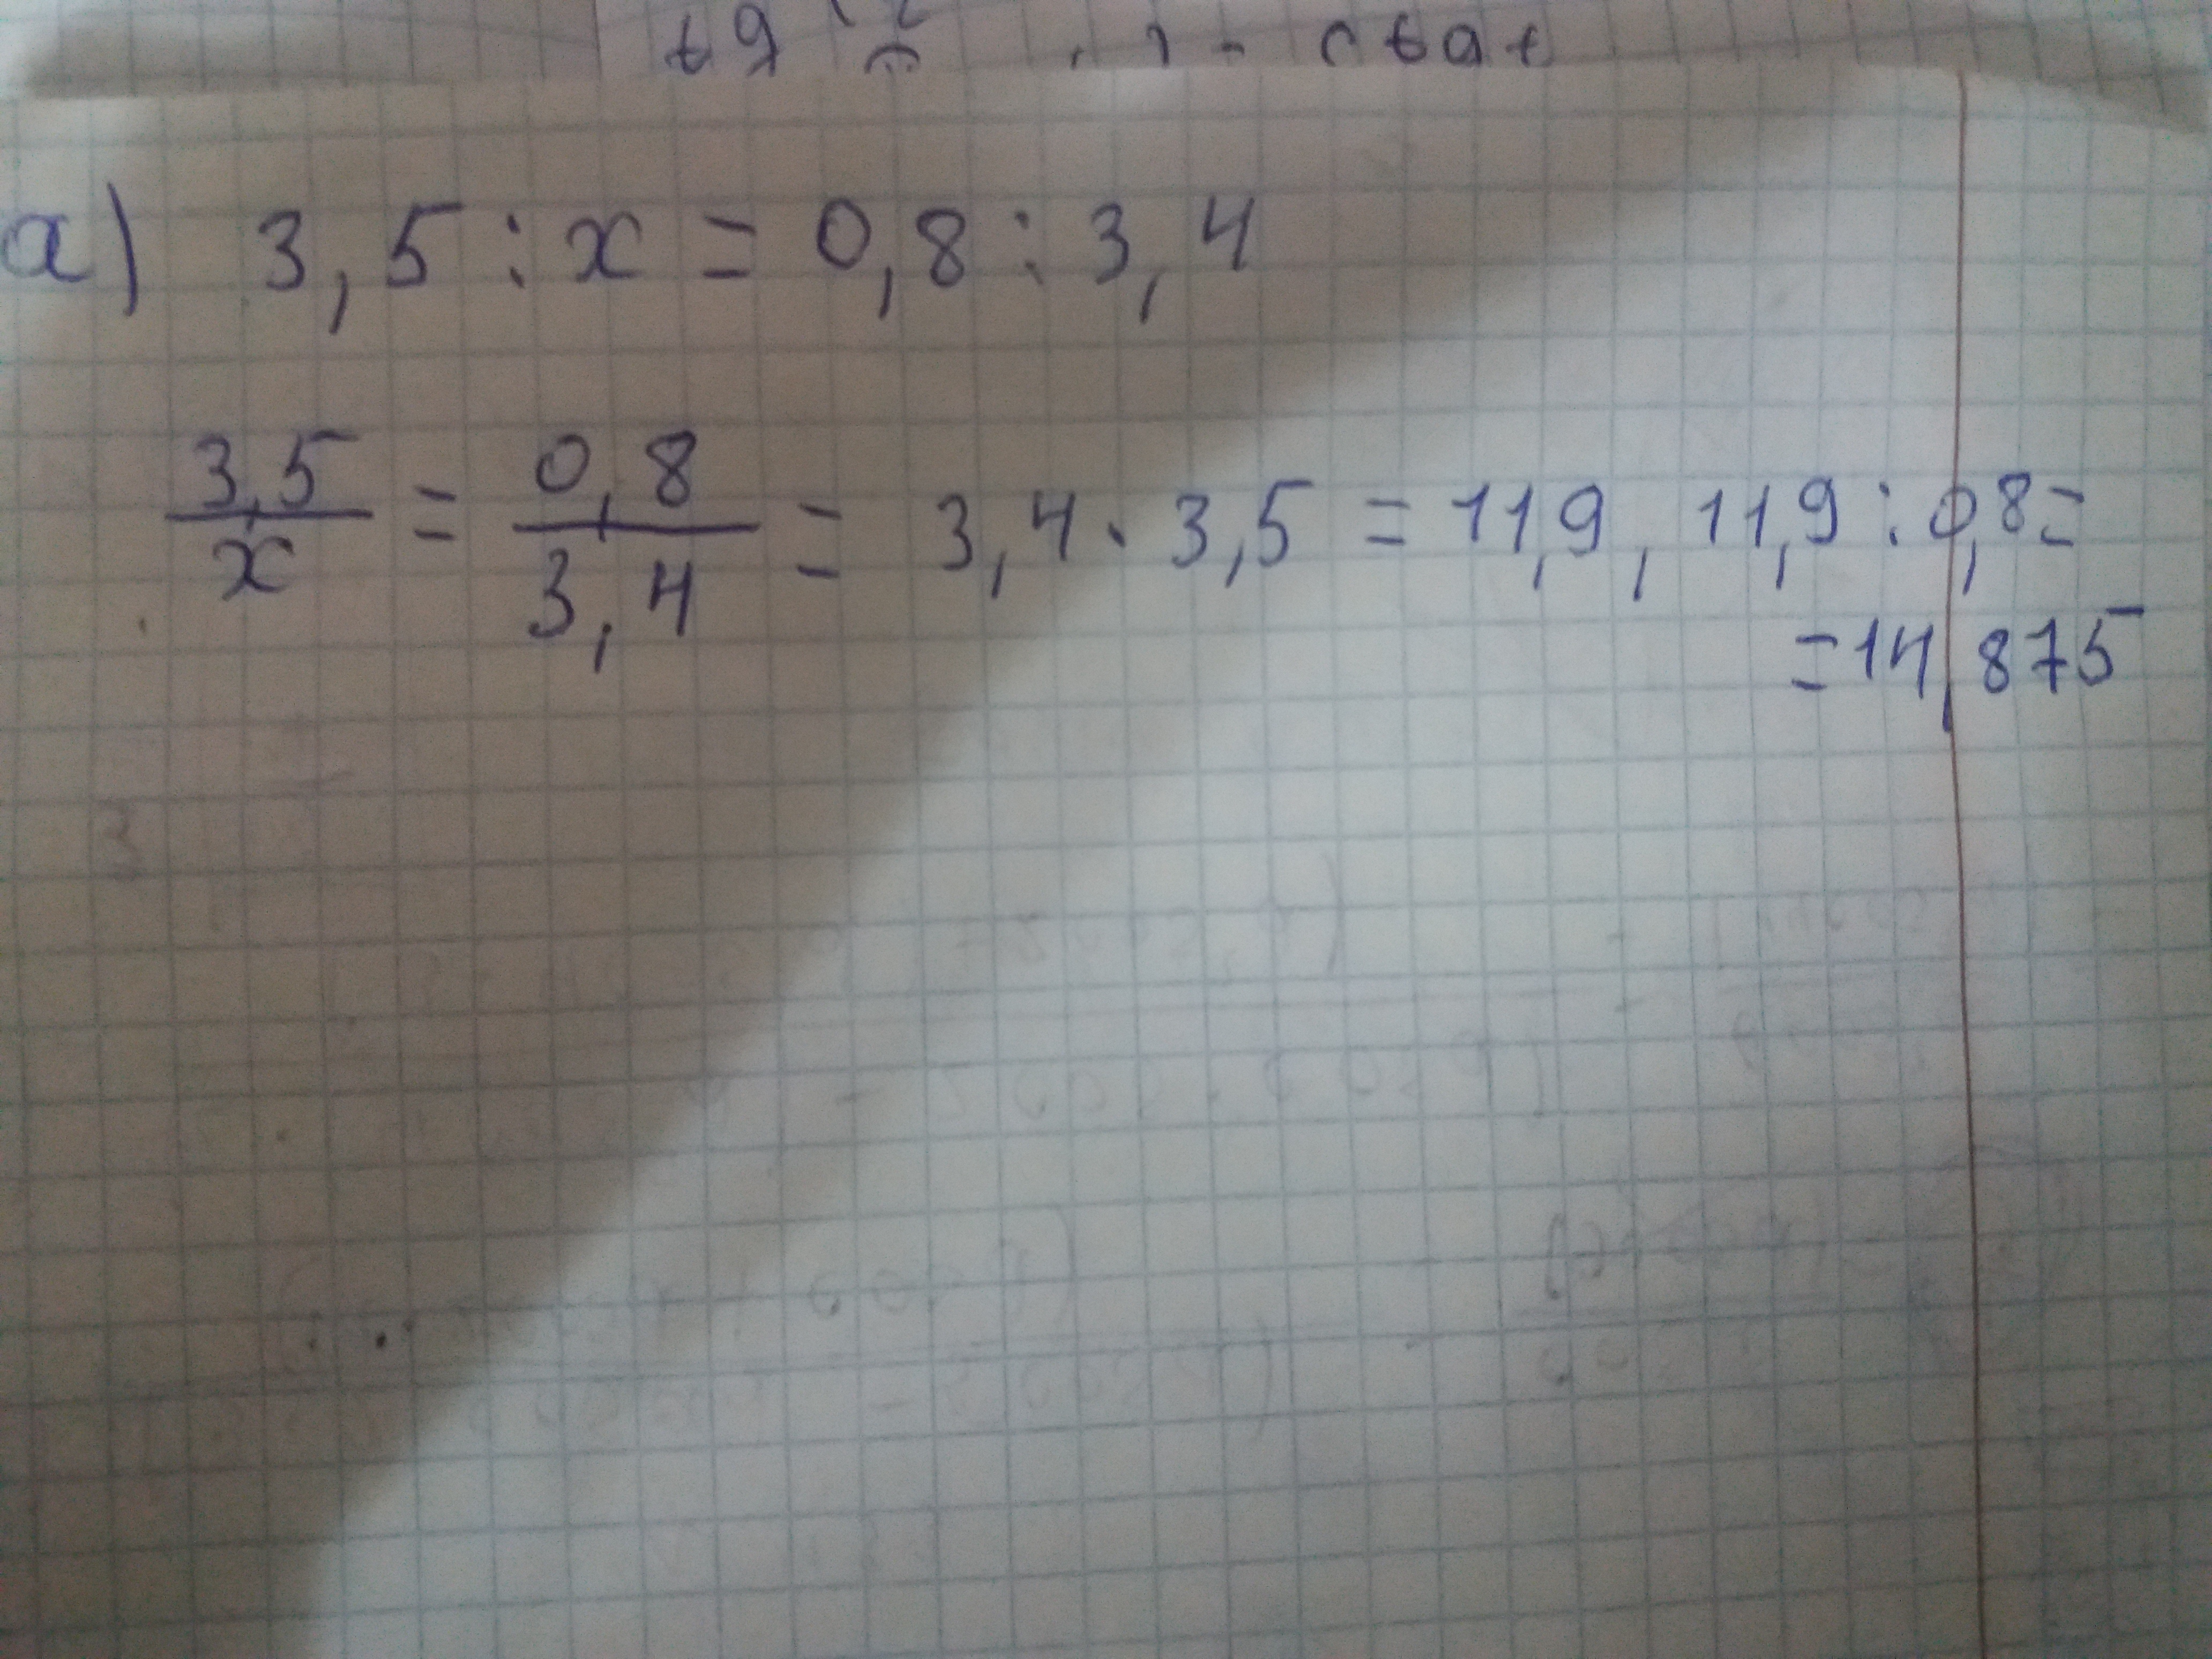 а) 3,5 : x = 0,8 : 3,4
3,5/x = 0,8/3,4 = 3,4 · 3,5 = 11,9, 11,9 : 0,8 =
= 14,875